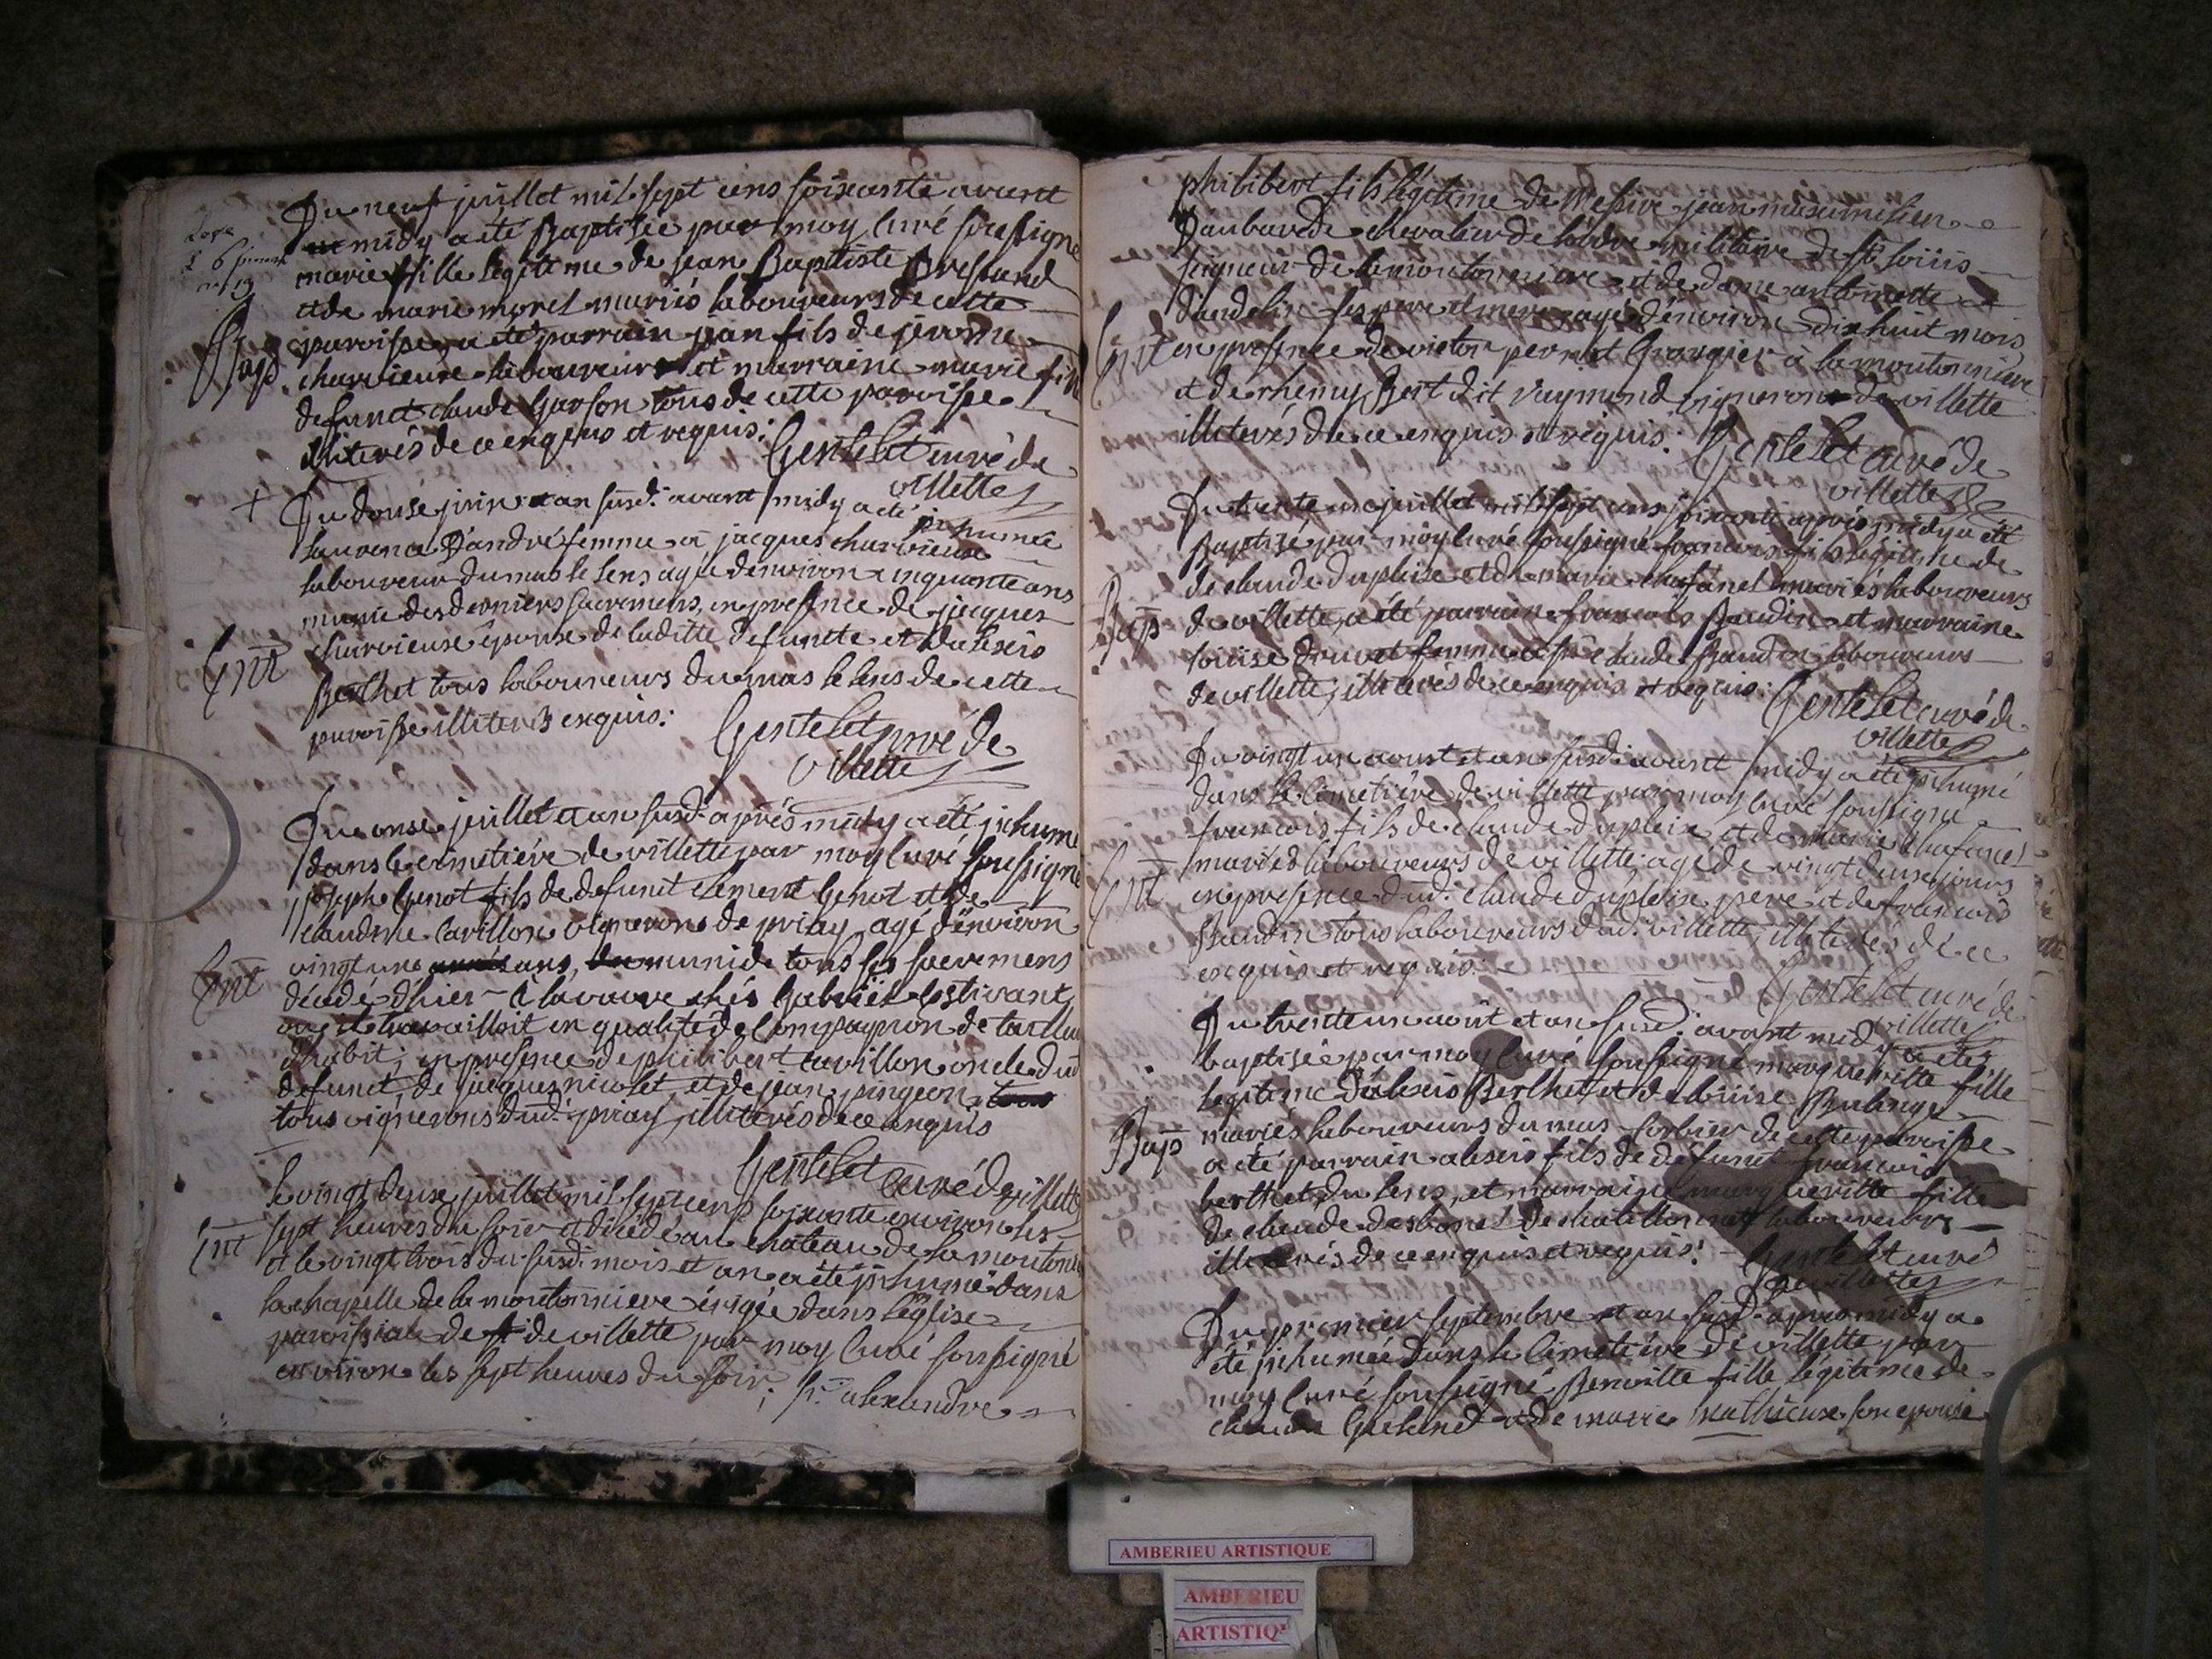 Du neuf juillet mil sept cens soixante avant
midy a été Baptisée par moy curé soussigné
marie fille légitime de jean Baptiste Bressand
et de marie morel mariés laboureurs de cette
paroisse, a été parrain jean fils de jerome
Bap
charvieuse laboureur et marraine marie fille
defunct claude Garson tous de cette paroisse
illiterés de ce enquis et requis.
Gentelet curé de
villette
+
Du douse juin et an susd. avant midy a été inhumée
laurence D'andré femme à jacques charvieuse
laboureur du mas le sens agée d'environ cinquante ans
munie des derniers sacremens, en presence de jacques
charvieuse epoux de laditte defuncte et d'alexis
Ent
Berthet tous laboureurs du mas le sens de cette
paroisse illiterés enquis.
Gentelet curé de
villette
Du onse juillet et an susd. après midy a été inhumé
dans le cimetiére de villette par moy curé soussigné
joseph Genot fils de defunct clement Genot et de
claudine Cavillon vignerons de priay agé d'environ
vingt une ans, muni de tous ses sacremens
Ent
décédé d'hier à la vavre chés Gabriel Estivant
ou il travailloit en qualité de Compagnon de tailleur
d'habit; en presence de philibert Cavillon oncle dud
defunct, de jacques nicolet et de jean pingeon
tous vignerons dud. priay, illiterés de ce enquis
Gentelet curé de villette
Le vingt deux juillet mil sept cens soixante environ les
sept heures du soir et décédé au chateau de la moutonniere
Ent
et le vingt trois du susd. mois et an a été inhumé dans
la chapelle de la moutonniere érigée dans l'église
paroissiale de villette par moy Curé soussigné
environ les sept heures du soir
; sr. alexandre
philibert fils légitime de Messire jean maximilien
Daubarede chevalier de l'ordre militaire de St Loüis
seigneur de la moutonniere et de dame antoinette
dandelin ses pere et mere, agé d'environ dix huit mois
Ent
en presence de victor pernet Grangier à la moutonniere
et de rhemy Bert dit Raymond vigneron de villette
illiterés de ce enquis et requis.
Gentelet curé de
villette
Du trente un juillet mil sept cens soixante après midy a été
Baptisé par moy Curé soussigné francois fils légitime de
de claude dupleise et de marie chafanel mariés laboureurs
Bap
de villette, a été parrain francois Baudin et marraine
loüise drouet femme à claude Baudin laboureurs
de villette; illiterés de ce enquis et requis.
Gentelet curé de
villette
Du vingt un aoust et an susdi avant midy a été inhumé
dans le Cimetiére de villette par moy Curé soussigné
francois fils de claude dupleix et de marie chafanel
mariés laboureurs de villette agé de vingt deux jours
Ent
en presence dud. claude dupleix pere et de francois
Baudin tous laboureurs dud. villette, illiterés de ce
enquis et requis.
Gentelet curé de
villette
Du trente un aoüt et an susd. avant midy a été
baptisée par moy Curé soussigné margueritte fille
legitime d'alexis Berthet et de loüise Bulinge
Bap
mariés laboureurs du mas Corbier de cette paroisse
a été parrain alexis fils de defunct francois
berthet du sens, et marraine margueritte fille
de claude desbonet de chatillonnet laboureurs
illiterés de ce enquis et requis.
Gentelet curé
de villette
Du premier septembre et an susd. apres midy a
été inhumée dans le Cimetiére de villette par
moy Curé soussigné Benoitte fille légitime de
claude Greland et de marie mathieuse son epouse
AMBERIEU ARTISTIQUE
AMBERIEU
ARTISTIQ